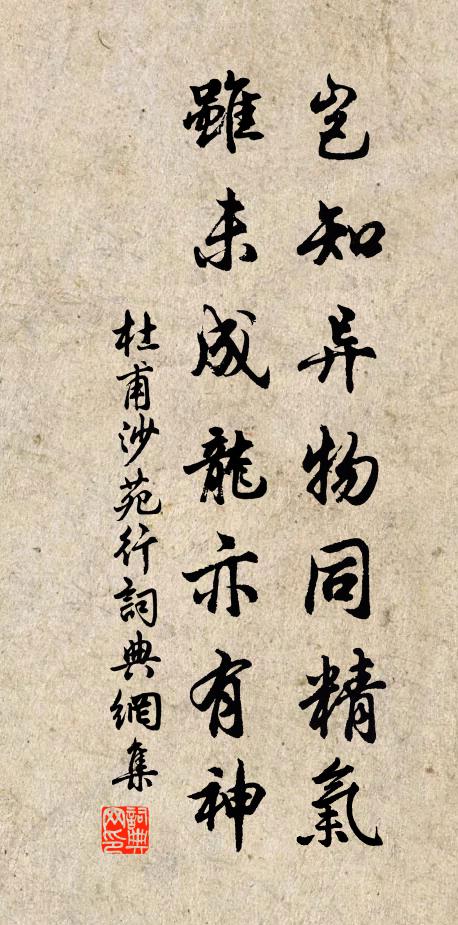 岂知异物同精氣
雖未成龍亦有神
杜甫沙苑行詞典網集
詞典网印